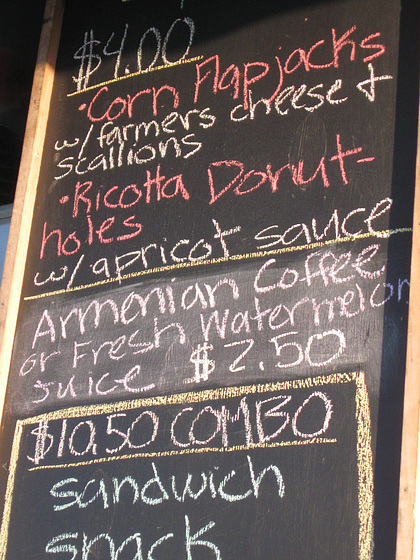 $4.00
•Corn Flapjacks
w/farmers cheese +
scallions
•Ricotta Donut-
holes
w/apricot sauce
Armenian Coffee
or Fresh Watermelon
juice $2.50
$10.50 COMBO
sandwich
snack